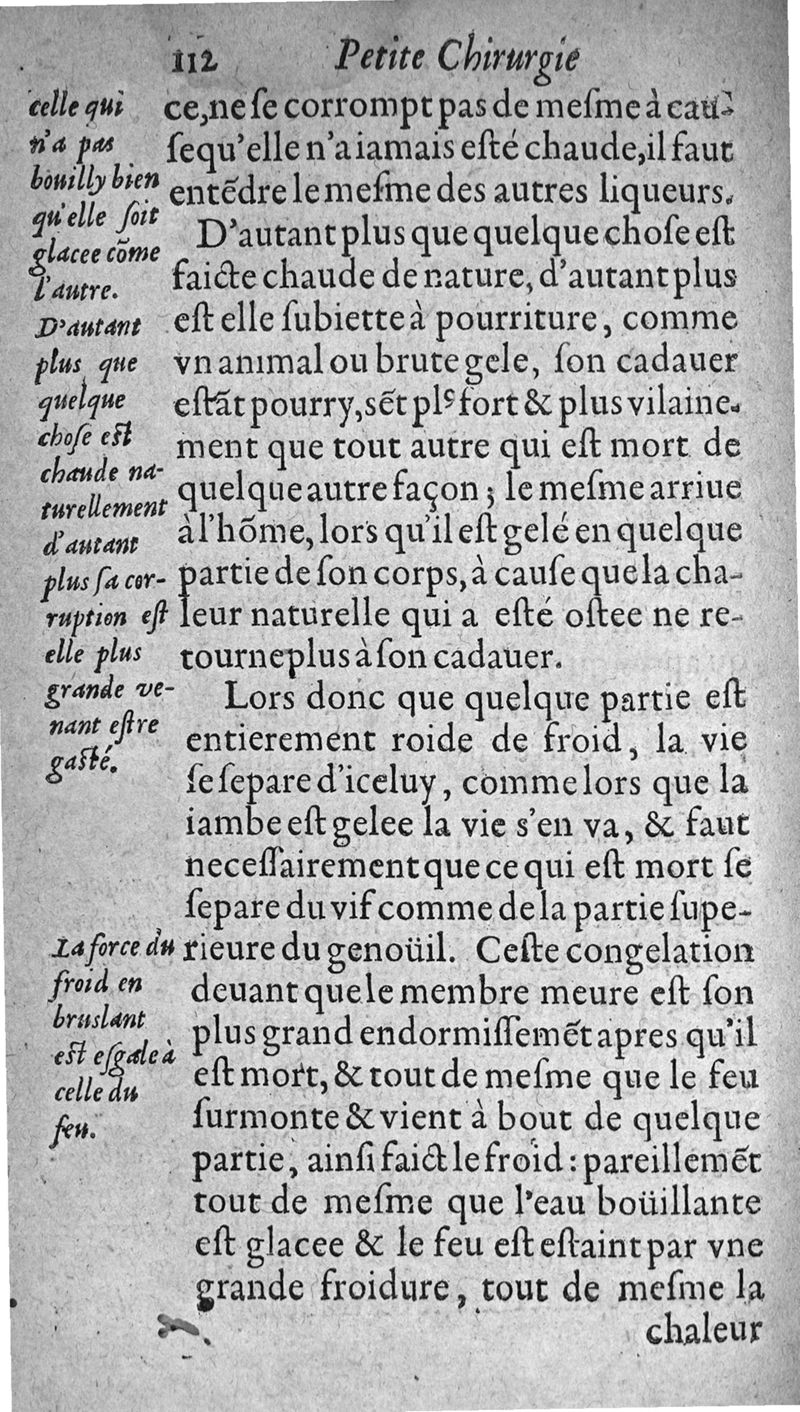 112 Petite Chirurgie
ce, ne ſe corrompt pas de meſme à cau-
ſe qu’elle n’a iamais eſté chaude, il faut
entẽdre le meſme des autres liqueurs.
D’autant plus que quelque choſe eſt
faicte chaude de nature, d’autant plus
eſt elle ſubiette à pourriture, comme
vn animal ou brute gele, ſon cadauer
eſtãt pourry, sẽt plꝰ fort & plus vilaine-
ment que tout autre qui eſt mort de
quelque autre façon ; le meſme arriue
à l’hõme, lors qu’il eſt gelé en quelque
partie de ſon corps, à cauſe que la cha-
leur naturelle qui a eſté oſtee ne re-
tourne plus à ſon cadauer.
Lors donc que quelque partie eſt
entierement roide de froid, la vie
ſe ſepare d’iceluy, comme lors que la
iambe eſt gelee la vie s’en va, & faut
neceſſairement que ce qui eſt mort ſe
ſepare du vif comme de la partie ſupe-
rieure du genoüil. Ceſte congelation
deuant que le membre meure eſt ſon
plus grand endormiſſemẽt apres qu’il
eſt mort, & tout de meſme que le feu
ſurmonte & vient à bout de quelque
partie, ainſi faict le froid : pareillemẽt
tout de meſme que l’eau boüillante
eſt glacee & le feu eſt eſtaint par vne
grande froidure, tout de meſme la
chaleur
celle qui
n’a pas
bouilly bien
qu’elle ſoit
glacee cõme
l’autre.
D’autant
plus que
quelque
choſe eſt
chaude na-
turellement
d’autant
plus ſa cor-
ruption eſt
elle plus
grande ve-
nant eſtre
gaſté.
La force du
froid en
bruslant
eſt eſgale à
celle du
feu.